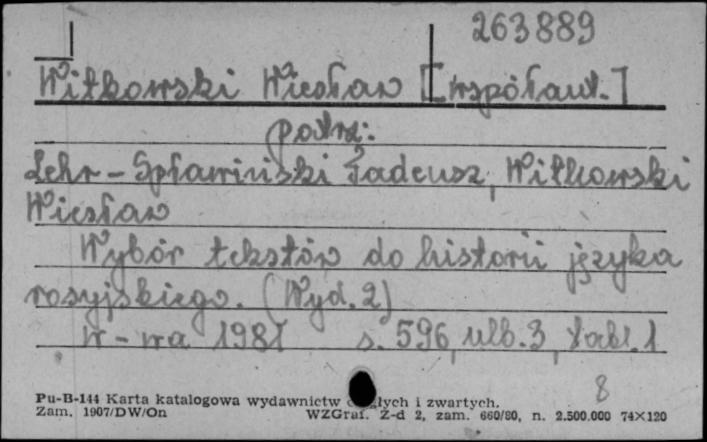 263889
Witkowski Wiesław [współaut.]
patrz:
Lehr-Spławiński Tadeusz, Witkowski
Wiesław
Wybór tekstów do historii języka
rosyjskiego. (Wyd. 2)
W-wa 1981 s. 596, nlb. 3, tabl. 1
8
Pu-B-144 Karta katalogowa wydawnictw i zwartych.
Zam. 1907/DW/On WZGraf. Z-d 2, zam. 660/80, n. 2.500.000 74×120